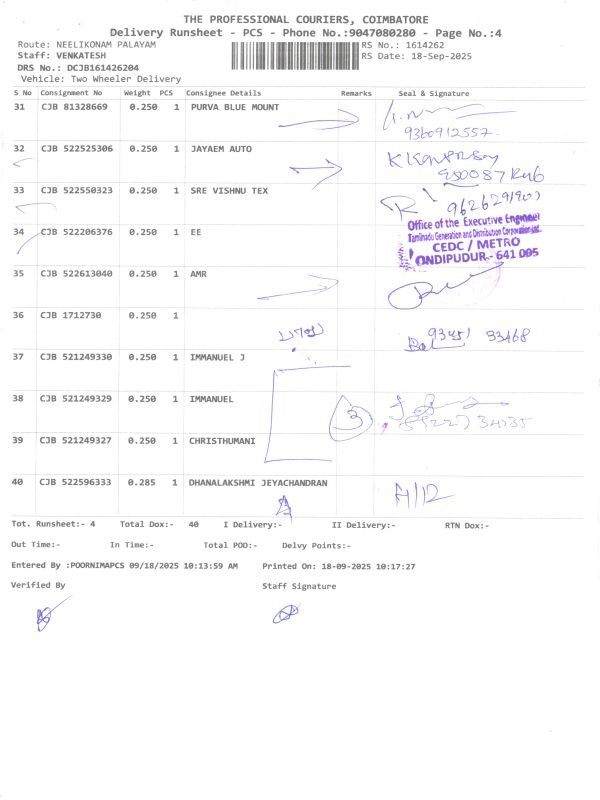 THE PROFESSIONAL COURIERS, COIMBATORE
Delivery Runsheet - PCS - Phone No.:9047080280 - Page No.:4
Route: NEELIKONAM PALAYAM RS No.: 1614262
Staff: VENKATESH RS Date: 18-Sep-2025
DRS No.: DCJB161426204
Vehicle: Two Wheeler Delivery
S No Consignment No Weight PCS Consignee Details Remarks Seal & Signature
31 CJB 81328669 0.250 1 PURVA BLUE MOUNT
9360912557
32 CJB 522525306 0.250 1 JAYAEM AUTO
33 CJB 522550323 0.250 1 SRE VISHNU TEX
Office of the Executive Engineer
Tamilnadu Generation and Distribution Corporation Ltd.
34 CJB 522206376 0.250 1 EE
CEDC / METRO
ONDIPUDUR - 641 005
35 CJB 522613040 0.250 1 AMR
36 CJB 1712730 1
93451 33468
37 CJB 521249330 0.250 1 IMMANUEL J
38 CJB 521249329 0.250 1 IMMANUEL
3
39 CJB 521249327 0.250 1 CHRISTHUMANI
40 CJB 522596333 0.285 1 DHANALAKSHMI JEYACHANDRAN
A/12
Tot. Runsheet:- 4 Total Dox:- 40 I Delivery:- II Delivery:- RTN Dox:-
Out Time:- In Time:- Total POD:- Delvy Points:-
Entered By :POORNIMAPCS 09/18/2025 10:13:59 AM Printed On: 18-09-2025 10:17:27
Verified By Staff Signature